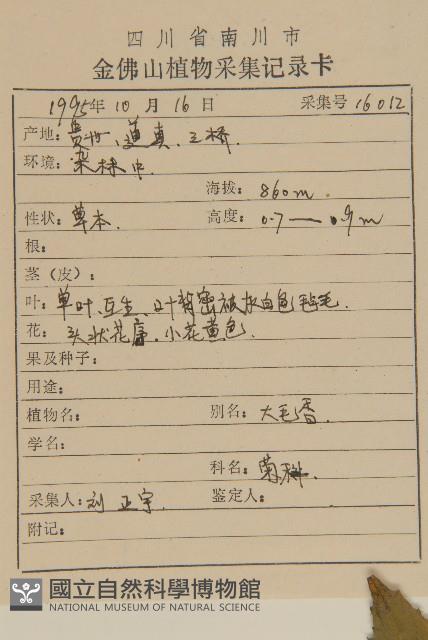 四川省南川市
金佛山植物采集记录卡
1995年10月16日 采集号 16012
产地: 贵州、道真、三桥.
环境: 杂林中.
海拔: 860m
性状: 草本. 高度: 0.7—0.9m
根:
茎(皮):
叶: 单叶、互生、叶背密被灰白色毡毛.
花: 头状花序. 小花黄色.
果及种子:
用途:
植物名: 别名: 大毛香.
学名:
科名: 菊科.
采集人: 刘正宇. 鉴定人:
附记:
國立自然科學博物館
NATIONAL MUSEUM OF NATURAL SCIENCE